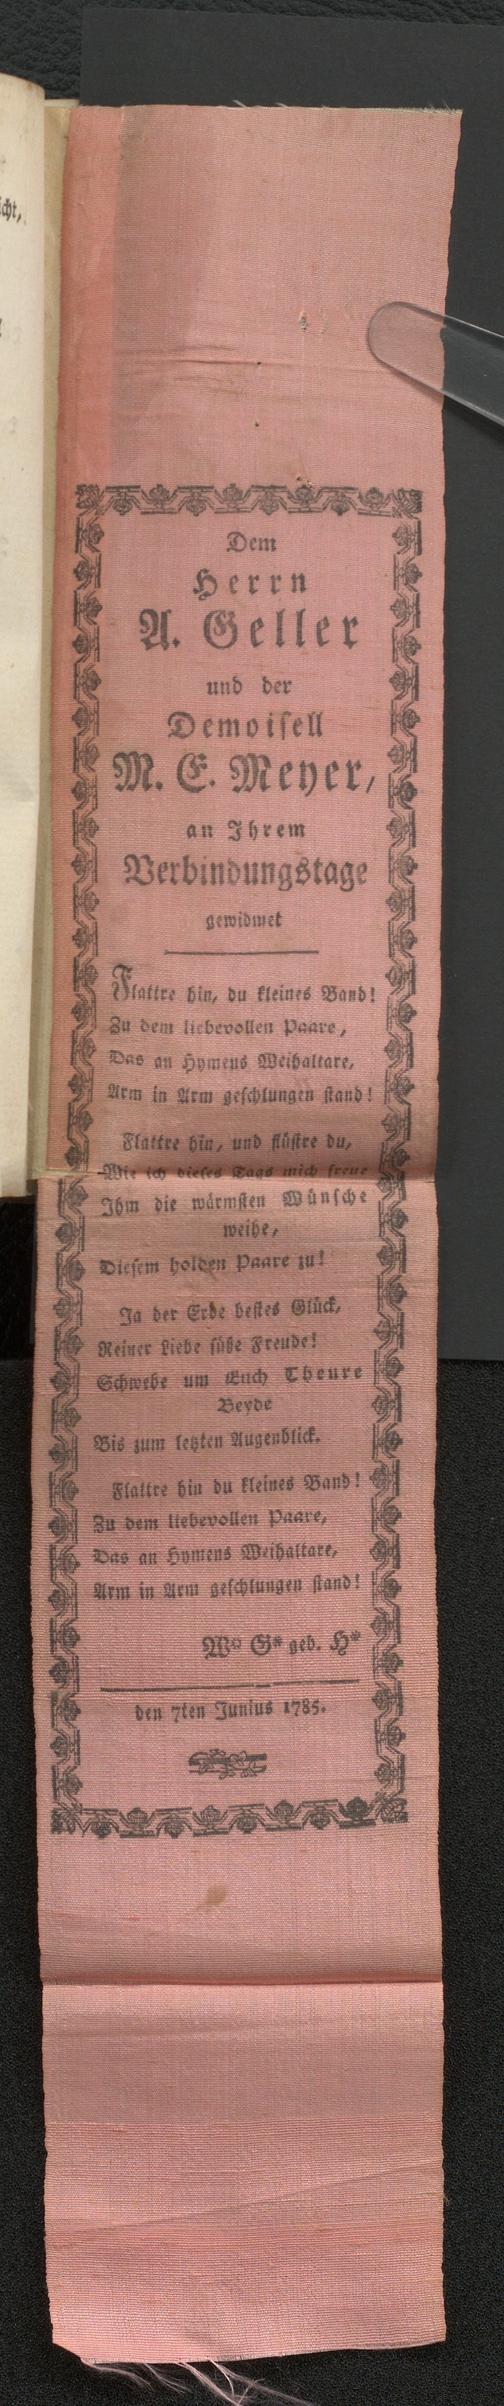 cht,
Dem
Herrn
A. Geller
und der
Demoisell
M. E. Meyer,
an Ihrem
Verbindungstage
gewidmet
Flattre hin, du kleines Band!
Zu dem liebevollen Paare,
Das an Hymens Weihaltare,
Arm in Arm geschlungen stand!
Flattre hin, und flüstre du,
Wie ich dieses Tags mich freue
Ihm die wärmsten Wünsche
weihe,
Diesem holden Paare zu!
Ja der Erde bestes Glück,
Reiner Liebe süße Freude!
Schwebe um Euch Theure
Beyde
Bis zum letzten Augenblick.
Flattre hin du kleines Band!
Zu dem liebevollen Paare,
Das an Hymens Weihaltare,
Arm in Arm geschlungen stand!
W* G* geb. H*
den 7ten Junius 1785.